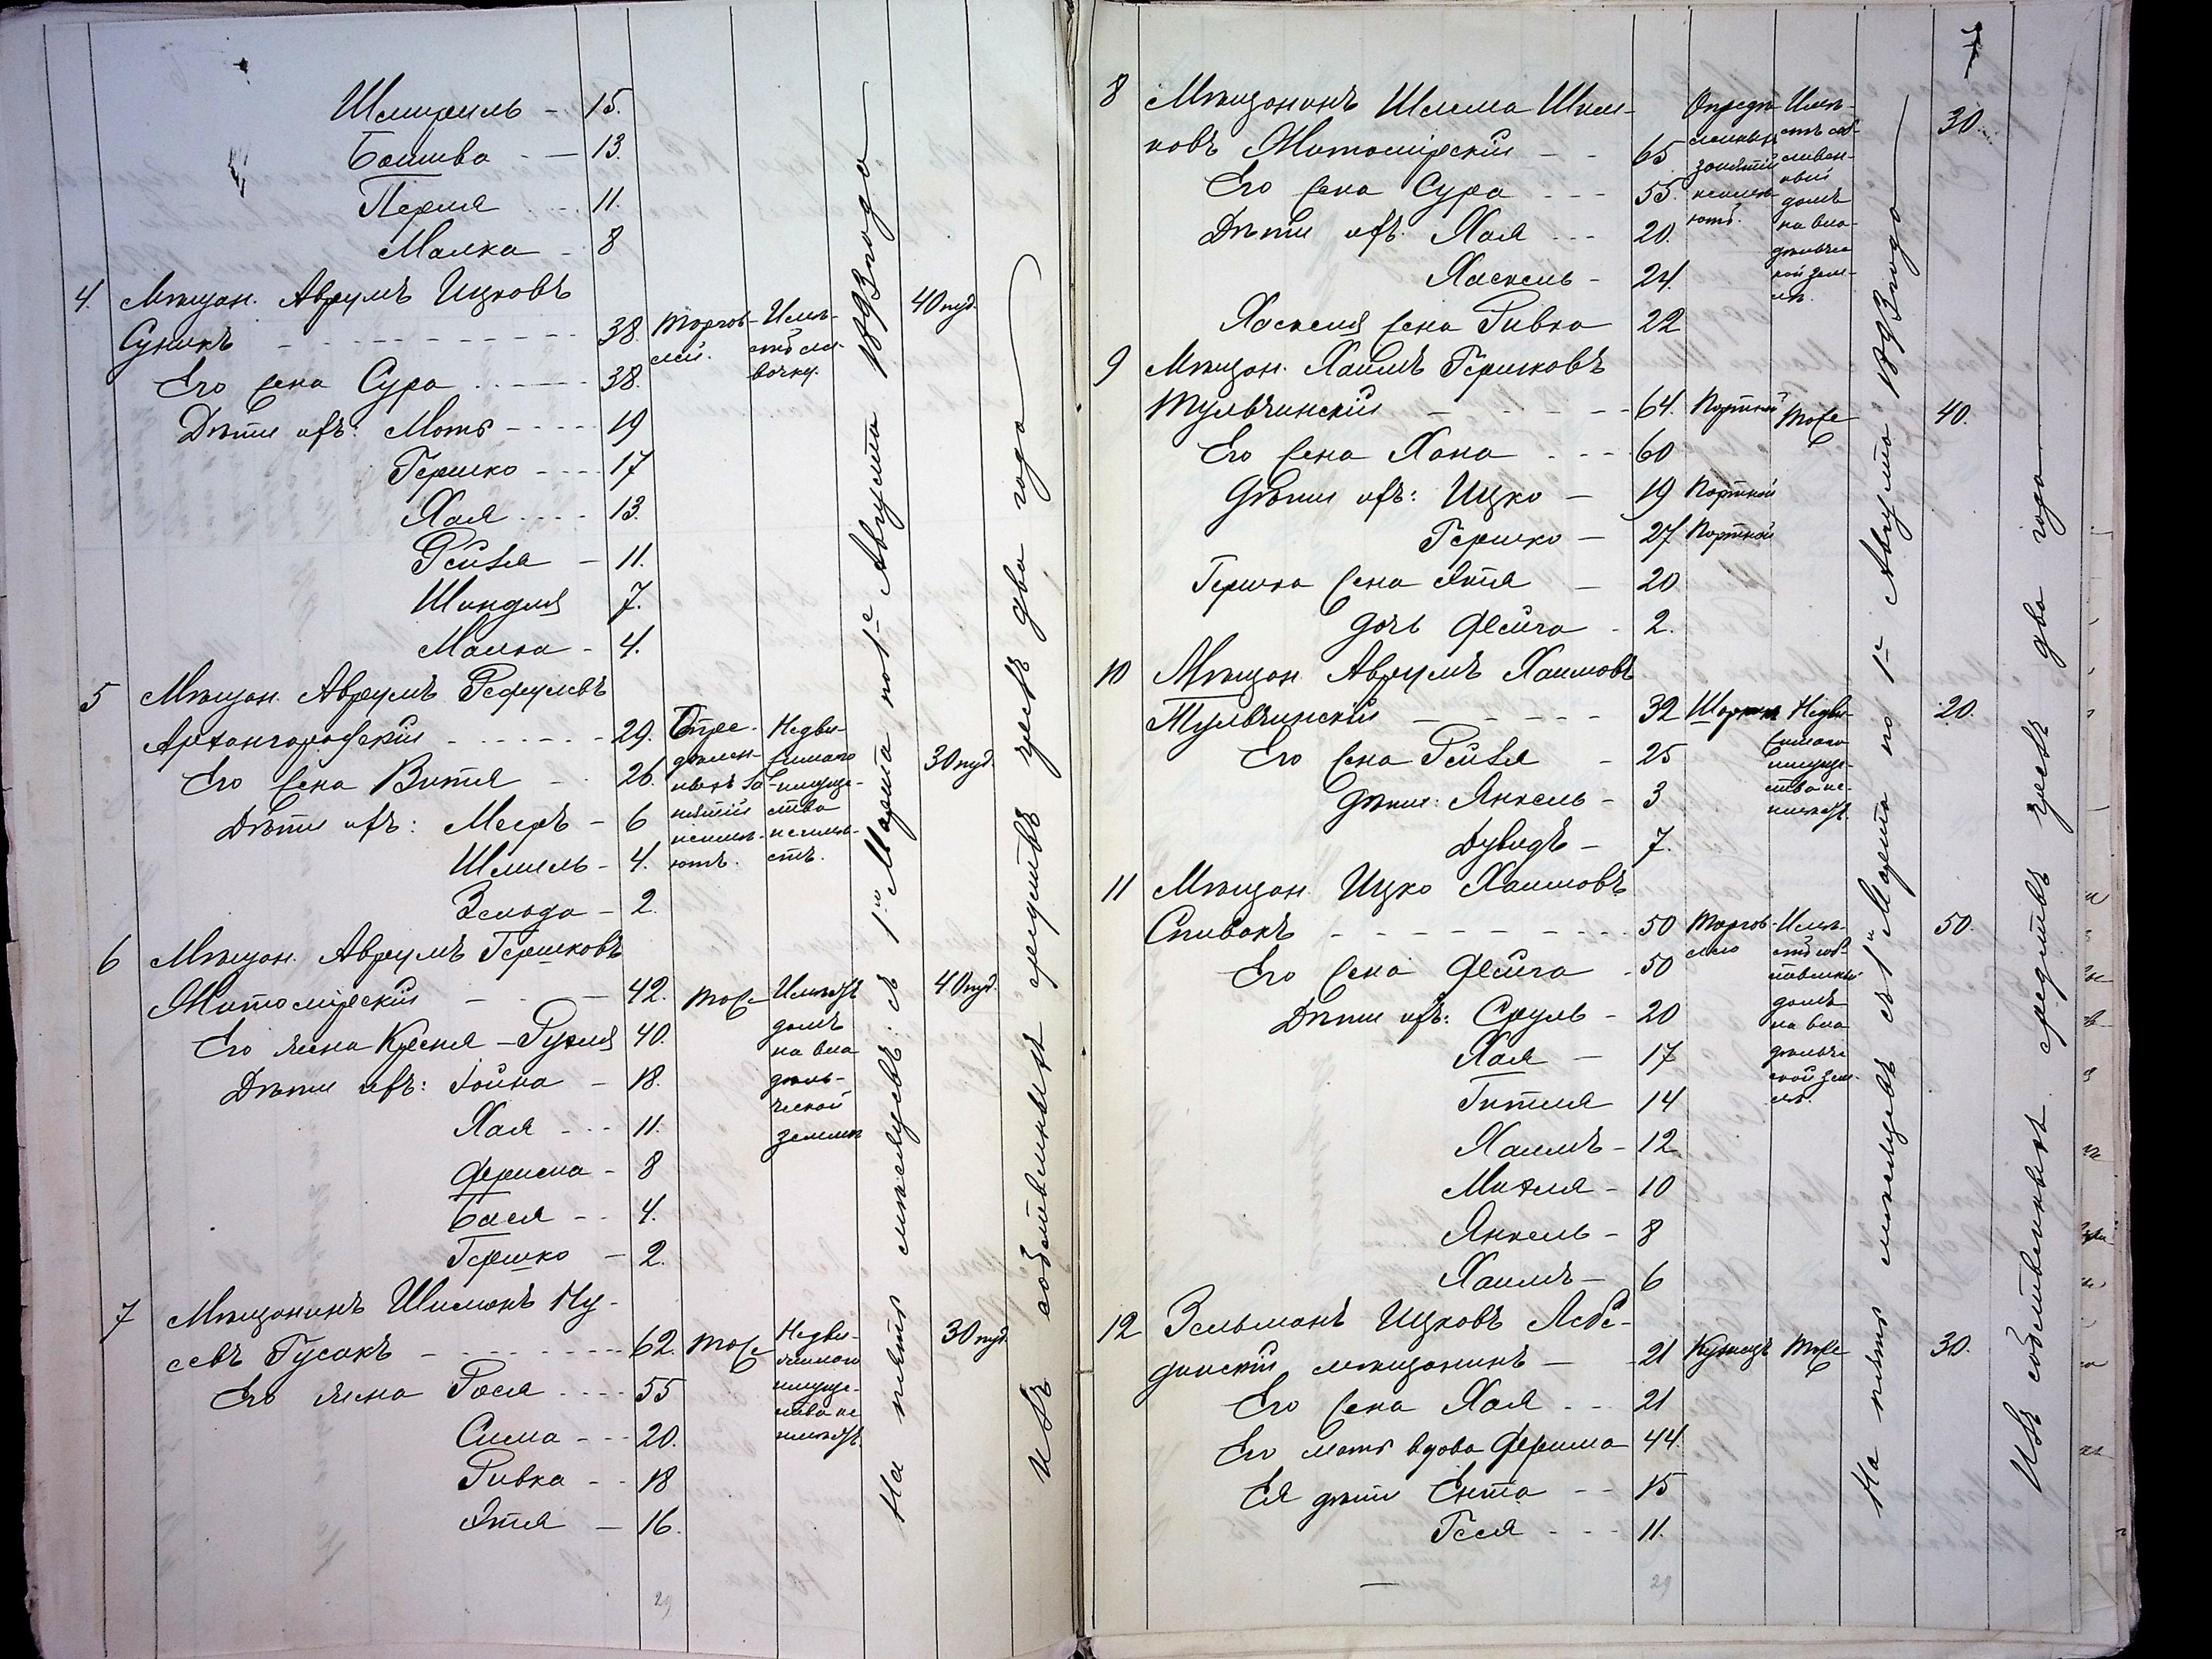 Шмириль - 15.
Башива - - 13.
Перля - - 11.
Малка - 8
4. Мѣщан. Аврумъ Ицковъ
Суникъ - - - 38. Торгов- Имѣ- 40 пуд.
лей. етъ ла-
вочку.
Его жена Сура - - - 38.
Дѣти ихъ: Моть - - - 19
Гершко - - - 17
Хая - - - 13.
Рейзя - 11.
Шиндля 7.
Малка - 4.
5 Мѣщан. Аврумъ Рефулевъ
Архангородскій - - - 29. Опре- Недви-
дѣлен- жимаго 30 пуд.
ныхъ за- имуще-
нятій ства
неимѣ- неимѣ-
ютъ. етъ.
Его жена Витя - 26.
Дѣти ихъ: Мееръ - 6
Шмиль - 4.
Зельда - 2.
6 Мѣщан. Аврумъ Гершковъ
Житомірскій - - - 42. Тоже Имѣетъ 40 пуд.
домъ
на вла
дѣль-
ческой
землѣ
Его жена Крейня-Рухля 40.
Дѣти ихъ: Іойна - 18.
Хая - - - 11.
Фейга - 8
Бася - - 4.
Гершко - 2.
7 Мѣщанинъ Шимонъ Ну-
севъ Гусакъ - - - 62. Тоже Недви- 30 пуд.
жимаго
имуще-
ства не
имѣетъ.
Его жена Рося - - - 55
Сима - - - 20.
Ривка - - 18
Этя - 16.
На пять мѣсяцевъ: съ 1го Марта по 1е Августа 1893 года
Изъ собственныхъ средствъ чрезъ два года
7
8 Мѣщанинъ Шлема Шим-
ковъ Житомірскій - - 65 Опредѣ- Имѣ- 30.
ленныхъ етъ соб-
занятій ствен-
неимѣ- ный
ютъ. домъ
на вла-
дѣльчес
кой зем-
лѣ.
Его жена Сура - - - 55.
Дѣти ихъ: Хая - - - 20.
Хаскель - 24.
Хаскеля жена Ривка 22
9 Мѣщан. Хаимъ Гершковъ
Тульчинскій - - - 64. Портной Тоже 40.
Его жена Хана - - - 60
Дѣти ихъ: Ицко - 19 Портной
Гершко - 27 Портной
Гершка жена Этя - 20
дочь Фейга - 2.
10 Мѣщан. Аврумъ Хаимовъ
Тульчинскій - - - 32 Недви- 20.
жимаго
имуще-
ства не-
имѣетъ.
Его жена Рейзя - 25
Дѣти: Янкель - 3
Дувидъ - 7.
11 Мѣщан. Ицко Хаимовъ
Спивакъ - - - 50 Торгов- Имѣ- 50.
лею етъ соб-
ственный
домъ
на вла
дѣльче
ской зем-
лѣ.
Его жена Фейга - 50
Дѣти ихъ: Сруль - 20
Хая - 17
Гитля 14
Хаимъ - 12
Михля - 10
Янкель - 8
Хаимъ - 6
12 Зельманъ Ицковъ Лебе-
динскій мѣщанинъ - 21 Кузнецъ Тоже 30.
Его жена Хая - - 21
Его мать вдова Фрима 44.
Ея дѣти Ента - - 15
Геся - - - 11.
На пять мѣсяцевъ съ 1го Марта по 1е Августа 1893 года
Изъ собственныхъ средствъ чрезъ два года
29
29